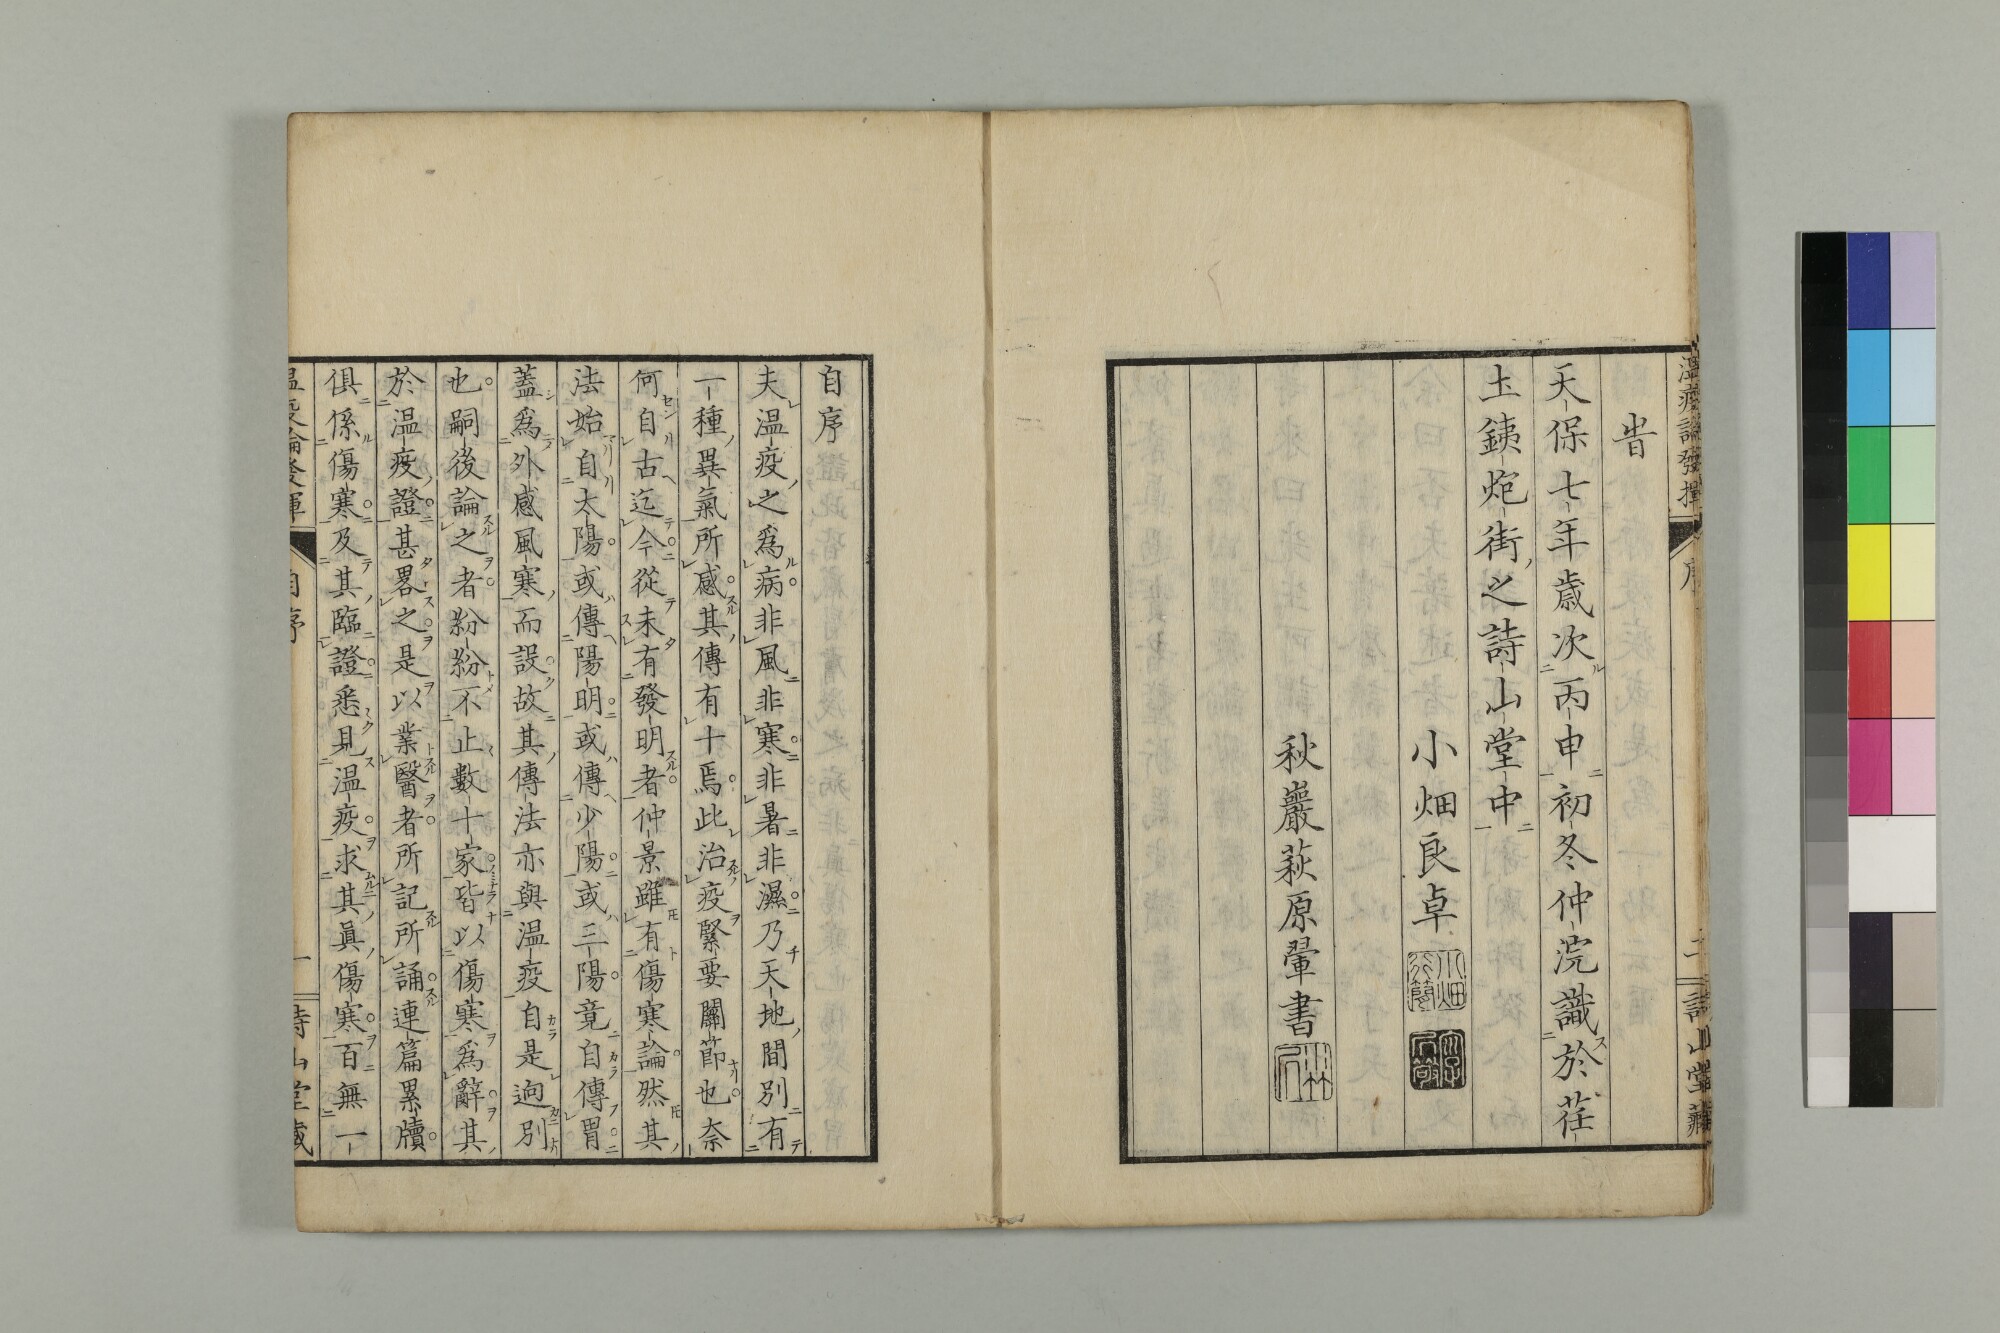 溫疫論發揮
序
二
詩山堂藏
旹
天保七年歳次丙申初冬仲浣識於荏
土銕炮街之詩山堂中
小畑良卓
秋巖萩原翬書
自序
夫温疫之爲病非風非寒非暑非濕乃天地間別有
一種異氣所感其傳有十焉此治疫緊要關節也奈
何自古迄今從未有發明者仲景雖有傷寒論然其
法始自太陽或傳陽明或傳少陽或三陽竟自傳胃
蓋爲外感風寒而設故其傳法亦與温疫自是逈別
也嗣後論之者紛紛不止數十家皆以傷寒爲辭其
於温疫證甚畧之是以業醫者所記所誦連篇累牘
俱係傷寒及其臨證悉見温疫求其眞傷寒百無一
溫疫論發揮
自序
一
詩山堂藏